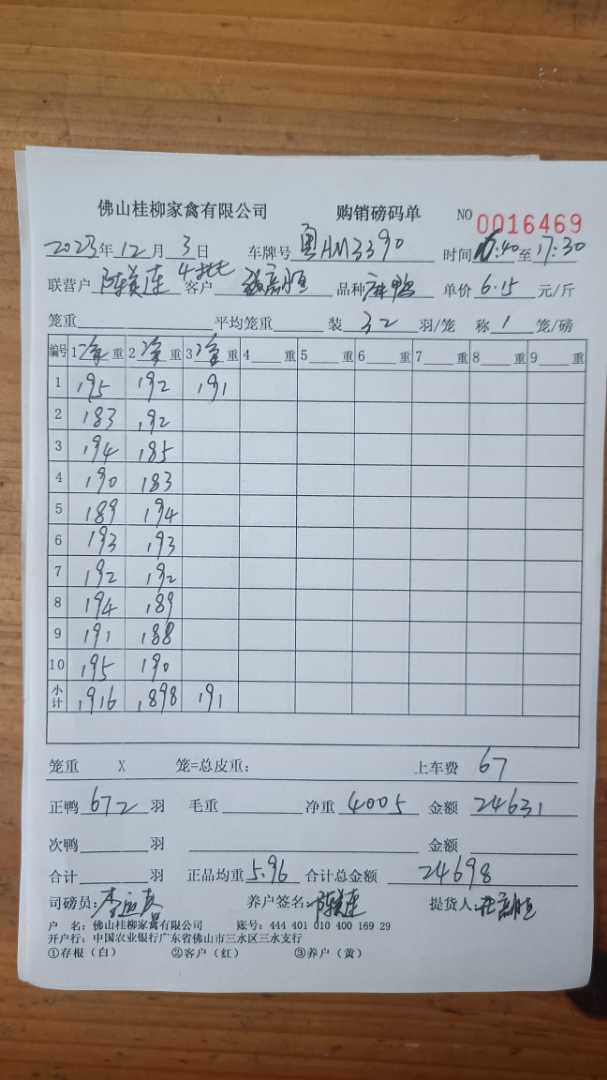 佛山桂柳家禽有限公司 购销磅码单 NO 0016469
2023年12月3日 车牌号 粤AM3390 时间 16:40至17:30
联营户 陈美连 4批 客户 品种 麻鸭 单价 6.15 元/斤
笼重 平均笼重 装 32 羽/笼 称 1 笼/磅
编号 1 净 重 2 净 重 3 净 重 4 重 5 重 6 重 7 重 8 重 9 重
1 195 192 191
2 183 192
3 194 185
4 190 183
5 189 194
6 193 193
7 192 192
8 194 189
9 191 188
10 195 190
小计 1916 1898 191
笼重 X 笼=总皮重: 上车费 67
正鸭 672 羽 毛重 净重 4005 金额 24631
次鸭 羽 金额
合计 羽 正品均重 5.96 合计总金额 24698
司磅员: 养户签名: 陈美连 提货人:
户 名: 佛山桂柳家禽有限公司 账号: 444 401 010 400 169 29
开户行: 中国农业银行广东省佛山市三水区三水支行
①存根(白) ②客户(红) ③养户(黄)